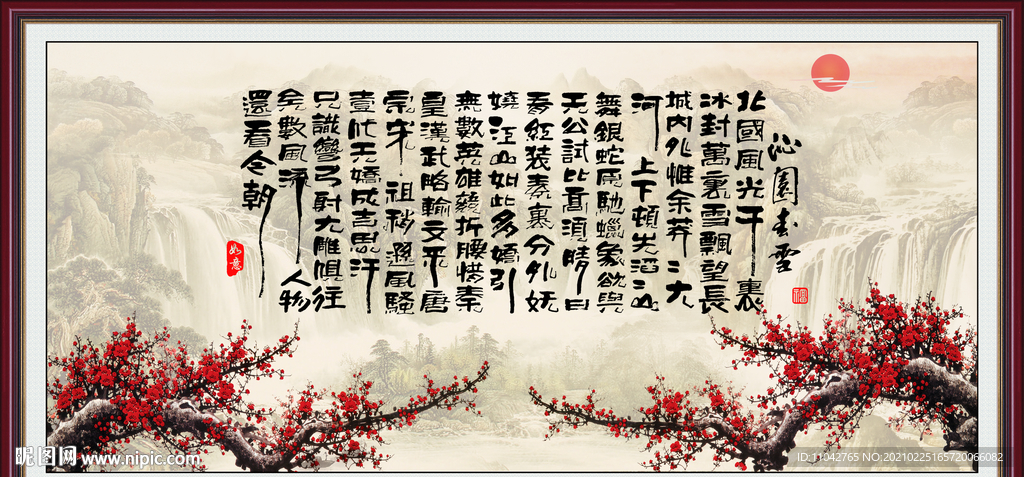 沁園春雪
福
北國風光千裏
冰封萬裏雪飄望長
城内外惟余莽〻大
河上下頓失滔〻山
舞銀蛇原馳蠟象欲與
天公試比高須晴日
看紅装素裹分外妖
嬈江山如此多嬌引
無數英雄競折腰惜秦
皇漢武略輸文采唐
宗宋祖稍遜風騷
壹代天驕成吉思汗
只識彎弓射大雕俱往
矣數風流人物
還看今朝
如意
昵图网 www.nipic.com
ID:11042765 NO:20210225165720066082